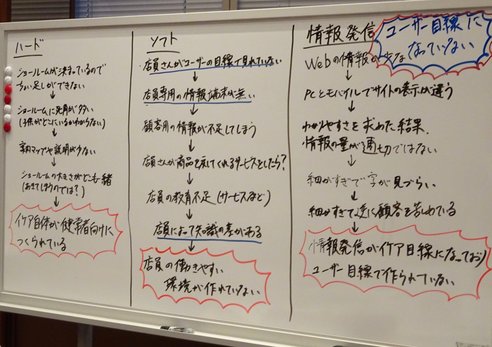 ハード
ショールームが決まっているので
ちょい足しができない
↓
ショールームに死角が多い
(子供がどこにいるかわからない)
↓
案内マップや説明が少ない
↓
ショールームの大きさがどこも一緒
(あきてしまうのでは？)
↓
イケア自体が健常者向けに
つくられている
ソフト
店員さんがユーザーの目線で見れていない
↓
店員専用の情報端末が無い
↓
顧客用の情報が不足してしまう
↓
店員さんが商品を探してくれるサービスをしたら？
↓
店員の教育不足(サービスなど)
↓
店員によって知識の差がある
↓
店員の働きやすい
環境が作れていない
情報発信
ユーザー目線に
なっていない
Webの情報が
↓
PCとモバイルでサイトの表示が違う
↓
わかりやすさを求めた結果、
情報の量が適切ではない
↓
細かすぎて字が見づらい
↓
細かすぎて逆に顧客を苦しめている
↓
情報発信がイケア目線になっており
ユーザー目線で作られていない